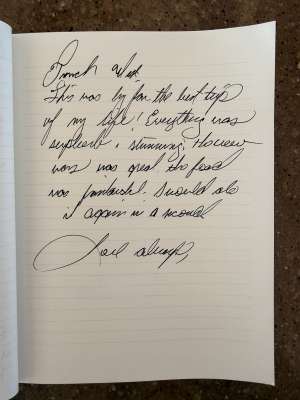 This was by far the best trip
of my life! Everything was
superb & stunning,
was great the food
was fantastic. I would do
it again in a second
Love always,